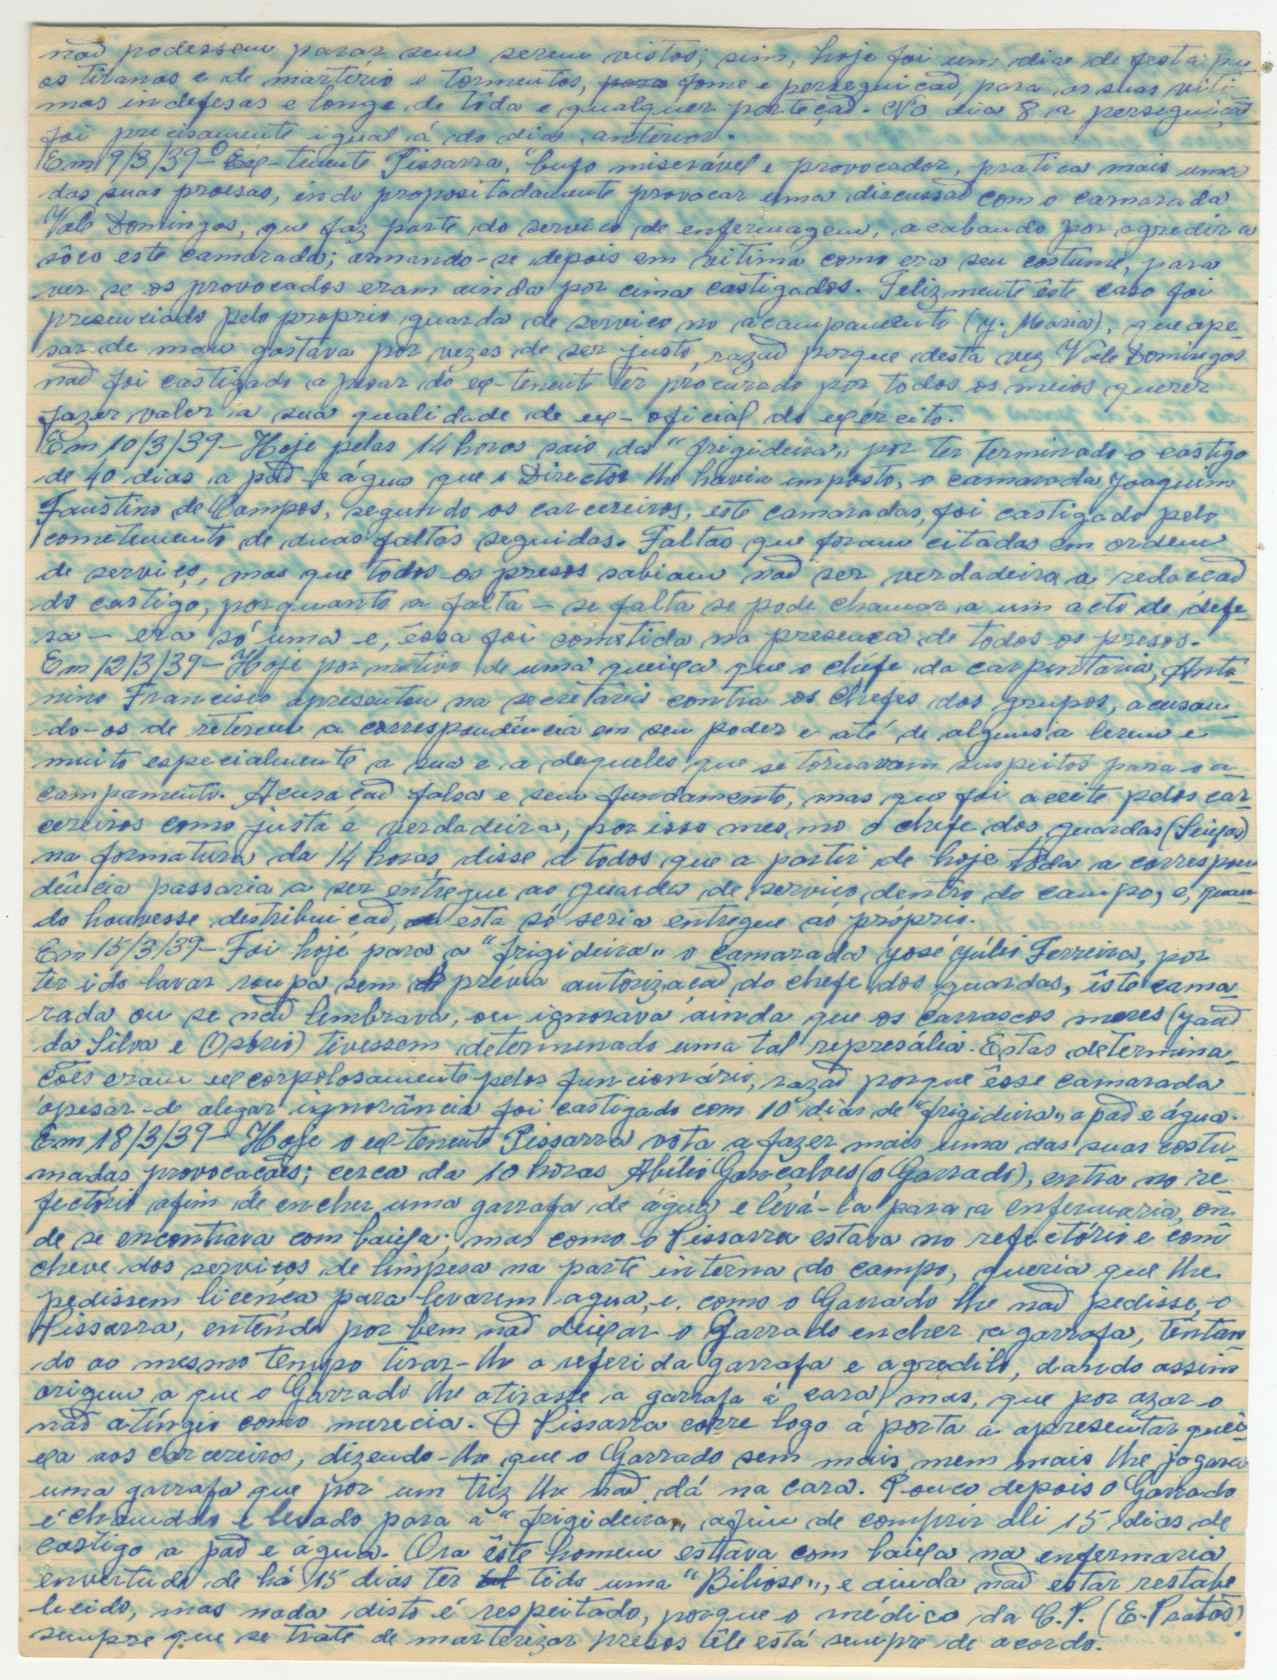 não podessem parar sem serem vistos; sim, hoje foi um dia de festa pa
os tiranos e de martírio e tormentos, fome e perseguicão, para as suas viti-
mas indefesas e longe de tôda e qualquer proteção. No dia 8 a perseguição
foi precisamente igual á do dia anterior.
Em 9/3/39- O ex-tenente Pissarra, "bufo miserável e provocador, pratica mais uma
das suas proesas, indo propositadamente provocar uma discussão com o camarada
Vale Domingos, que faz parte do serviço de enfermagem, acabando por agredir a
sôco este camarada; armando-se depois em vitima como era seu costume, para
ver se os provocados eram ainda por cima castigados. Felizmente êste caso foi
presenciado pelo proprio guarda de serviço no acampamento (J. Maria), que ape-
sar de mau gostava por vezes de ser justo, razão porque desta vez Vale Domingos
não foi castigado apesar do ex-tenente ter procurado por todos os meios querer
fazer valer a sua qualidade de ex-oficial do exército.
Em 10/3/39- Hoje pelas 14 horas saio da "frigideira" por ter terminado o castigo
de 40 dias a pão e água que o Director lhe havia imposto, o camarada Joaquim
Faustino de Campos, segundo os carcereiros, este camaradas, foi castigado pelo
cometimento de duas faltas seguidas. Faltas que foram citadas em ordem
de serviço, mas que todos os presos sabiam não ser verdadeira a redacção
do castigo, porquanto a falta - se falta se pode chamar a um acto de defe-
sa - era só uma e, êssa foi cometida na presença de todos os presos.
Em 12/3/39- Hoje por motivo de uma queixa que o chefe da carpintaria, Anto-
nino Francisco apresentou na secretaria contra os chefes dos grupos, acusan-
do-os de reterem a correspondência em seu poder e até de alguns a lerem e
muito especialmente a sua e a daqueles que se tornavam suspeitos para o a-
campamento. Acusação falsa e sem fundamento, mas que foi aceite pelos car-
cereiros como justa e verdadeira, por isso mesmo o chefe dos guardas (Seixas)
na formatura da 14 horas disse a todos que a partir de hoje tôda a correspon-
dência passaria a ser entregue ao guarda de serviço dentro do campo, e, quan-
do houvesse destribuição, esta só seria entregue ao próprio.
Em 15/3/39- Foi hoje para a "frigideira" o camarada José Júlio Ferreira, por
ter ido lavar roupa sem prévia autorização do chefe dos guardas, êste cama-
rada ou se não lembrava, ou ignorava ainda que os carrascos mores (João
da Silva e Osório) tivessem determenado uma tal represália. Estas determina-
ções eram excorpolosamente pelos funcionário, razão porque êsse camarada
apesar de alegar ignorância foi castigado com 10 dias de "frigideira" a pão e água.
Em 18/3/39- Hoje o ex-tenente Pissarra vota a fazer mais uma das suas costu-
madas provocacões; cerca da 10 horas Abílio Gonçalves (o Garrado), entra no re-
feitório afim de encher uma garrafa de água e levá-la para a enfermaria, on-
de se encontrava com baixa; mas como o Pissarra estava no refeitório e com
cheve dos serviços de limpesa na parte interna do campo, queria que lhe
pedissem licença para levarem agua, e como o Garrado lhe não pedisse, o
Pissarra, entendo por bem não deixar o Garrado encher a garrafa, tentan-
do ao mesmo tempo tirar-lhe a referida garrafa e agredilo, dando assim
origem a que o Garrado lhe atirasse a garrafa á cara, mas, que por azar o
não atíngio como merecia. O Pissarra corre logo á porta a apresentar quei-
xa aos carcereiros, dizendo-lhe que o Garrado sem mais nem mais lhe jogara
uma garrafa que por um triz lhe não dá na cara. Pouco depois o Garrado
é chamado e levado para a "frigideira" afim de comprir ali 15 dias de
castigo a pão e água. Ora êste homem estava com baixa na enfermaria
envertude de há 15 dias ter tido uma "Biliose", e ainda não estar restabe-
lecido, mas nada disto é respeitado, porque o médico da C.P. (E. Pratas)
sempre que se trate de marterizar presos êle está sempre de acordo.